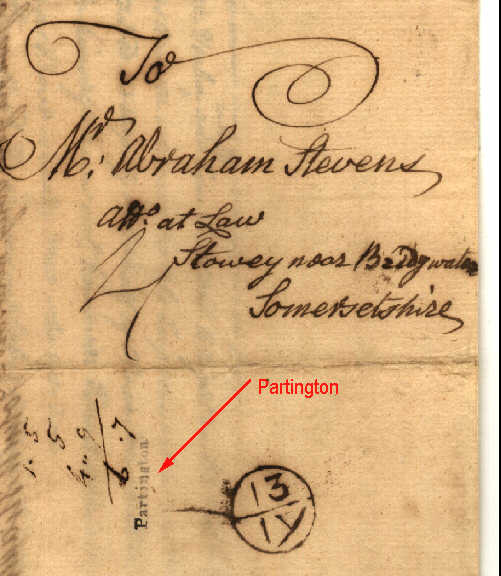 To
Mr. Abraham Stevens
atto. at Law
Stowey near Bridgwater
Somersetshire
Partington
Partington
1. 5
5
4. 9
6. 7
13
IY